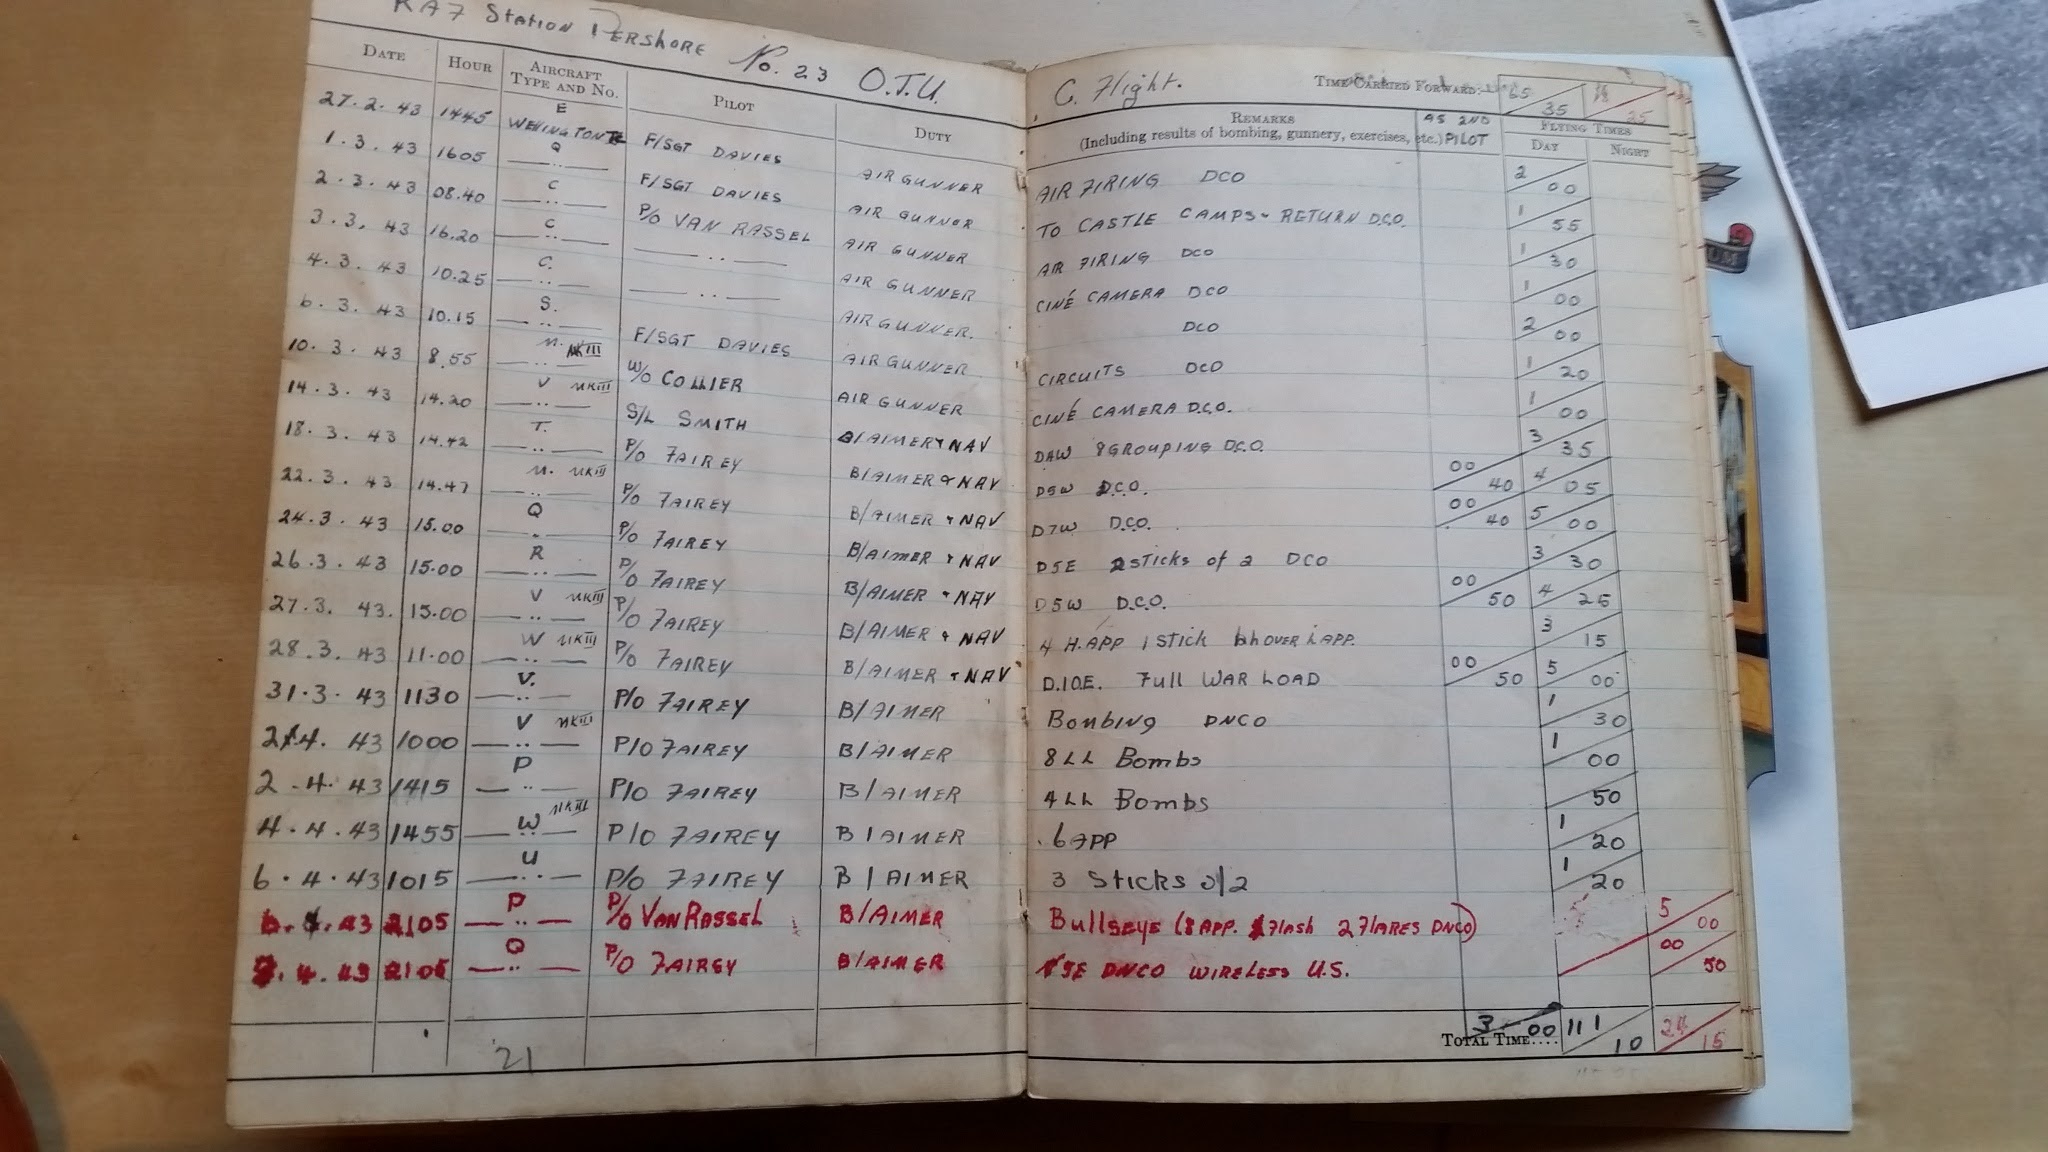 RAF Station PERSHORE No. 23 O.T.U.
DATE HOUR AIRCRAFT TYPE AND NO. PILOT DUTY
27.2.43 1445 E WELLINGTON F/SGT DAVIES AIR GUNNER
1.3.43 1605 Q —··— F/SGT DAVIES AIR GUNNOR
2.3.43 08.40 C —··— P/O VAN RASSEL AIR GUNNER
3.3.43 16.20 C —··— —··— AIR GUNNER
4.3.43 10.25 C. —··— —··— AIR GUNNER.
6.3.43 10.15 S. —··— F/SGT DAVIES AIR GUNNER
10.3.43 8.55 M. MKIII —··— W/O COLLIER AIR GUNNER
14.3.43 14.20 V MKIII —··— S/L SMITH B/AIMER + NAV
18.3.43 14.42 T. —··— P/O FAIREY B/AIMER + NAV
22.3.43 14.47 M. MKIII —··— P/O FAIREY B/AIMER + NAV
24.3.43 15.00 Q P/O FAIREY B/AIMER + NAV
26.3.43 15.00 R —··— P/O FAIREY B/AIMER + NAV
27.3.43. 15.00 V MKIII —··— P/O FAIREY B/AIMER + NAV
28.3.43 11.00 W MKIII —··— P/O FAIREY B/AIMER + NAV
31.3.43 1130 V. —··— P/O FAIREY B/AIMER
2.4.43 1000 V MKIII —··— P/O FAIREY B/AIMER
2.4.43 1415 P —··— P/O FAIREY B/AIMER
4.4.43 1455 W MKIII —··— P/O FAIREY B/AIMER
6.4.43 1015 U —··— P/O FAIREY B/AIMER
6.4.43 2105 P —··— P/O VAN RASSEL B/AIMER
7.4.43 2105 Q —··— P/O FAIREY B/AIMER
21
C. Flight. TIME CARRIED FORWARD:— 65 35 25
REMARKS AS 2ND PILOT FLYING TIMES
(Including results of bombing, gunnery, exercises, etc.) DAY NIGHT
AIR FIRING DCO 2 00
TO CASTLE CAMPS + RETURN D.C.O. 1 55
AIR FIRING DCO 1 30
CINÉ CAMERA DCO 1 00
DCO 2 00
CIRCUITS DCO 1 20
CINÉ CAMERA D.C.O. 1 00
D4W 8 GROUPING D.C.O. 3 35
D5W D.C.O. 00 40 4 05
D7W D.C.O. 00 40 5 00
D5E 2 sticks of 2 DCO 3 30
D5W D.C.O. 00 50 4 25
4 H.APP 1 stick 3 15
D.10E. Full WAR LOAD 00 50 5 00
Bombing DNCO 1 30
8 LL Bombs 1 00
4 LL Bombs 50
6 APP 1 20
3 Sticks of 2 1 20
Bullseye (8 APP. 1 Flash 2 FLARES DNCO) 5 00
5E DNCO WIRELESS U.S. 00 50
TOTAL TIME.... 3 00 111 10 24 15